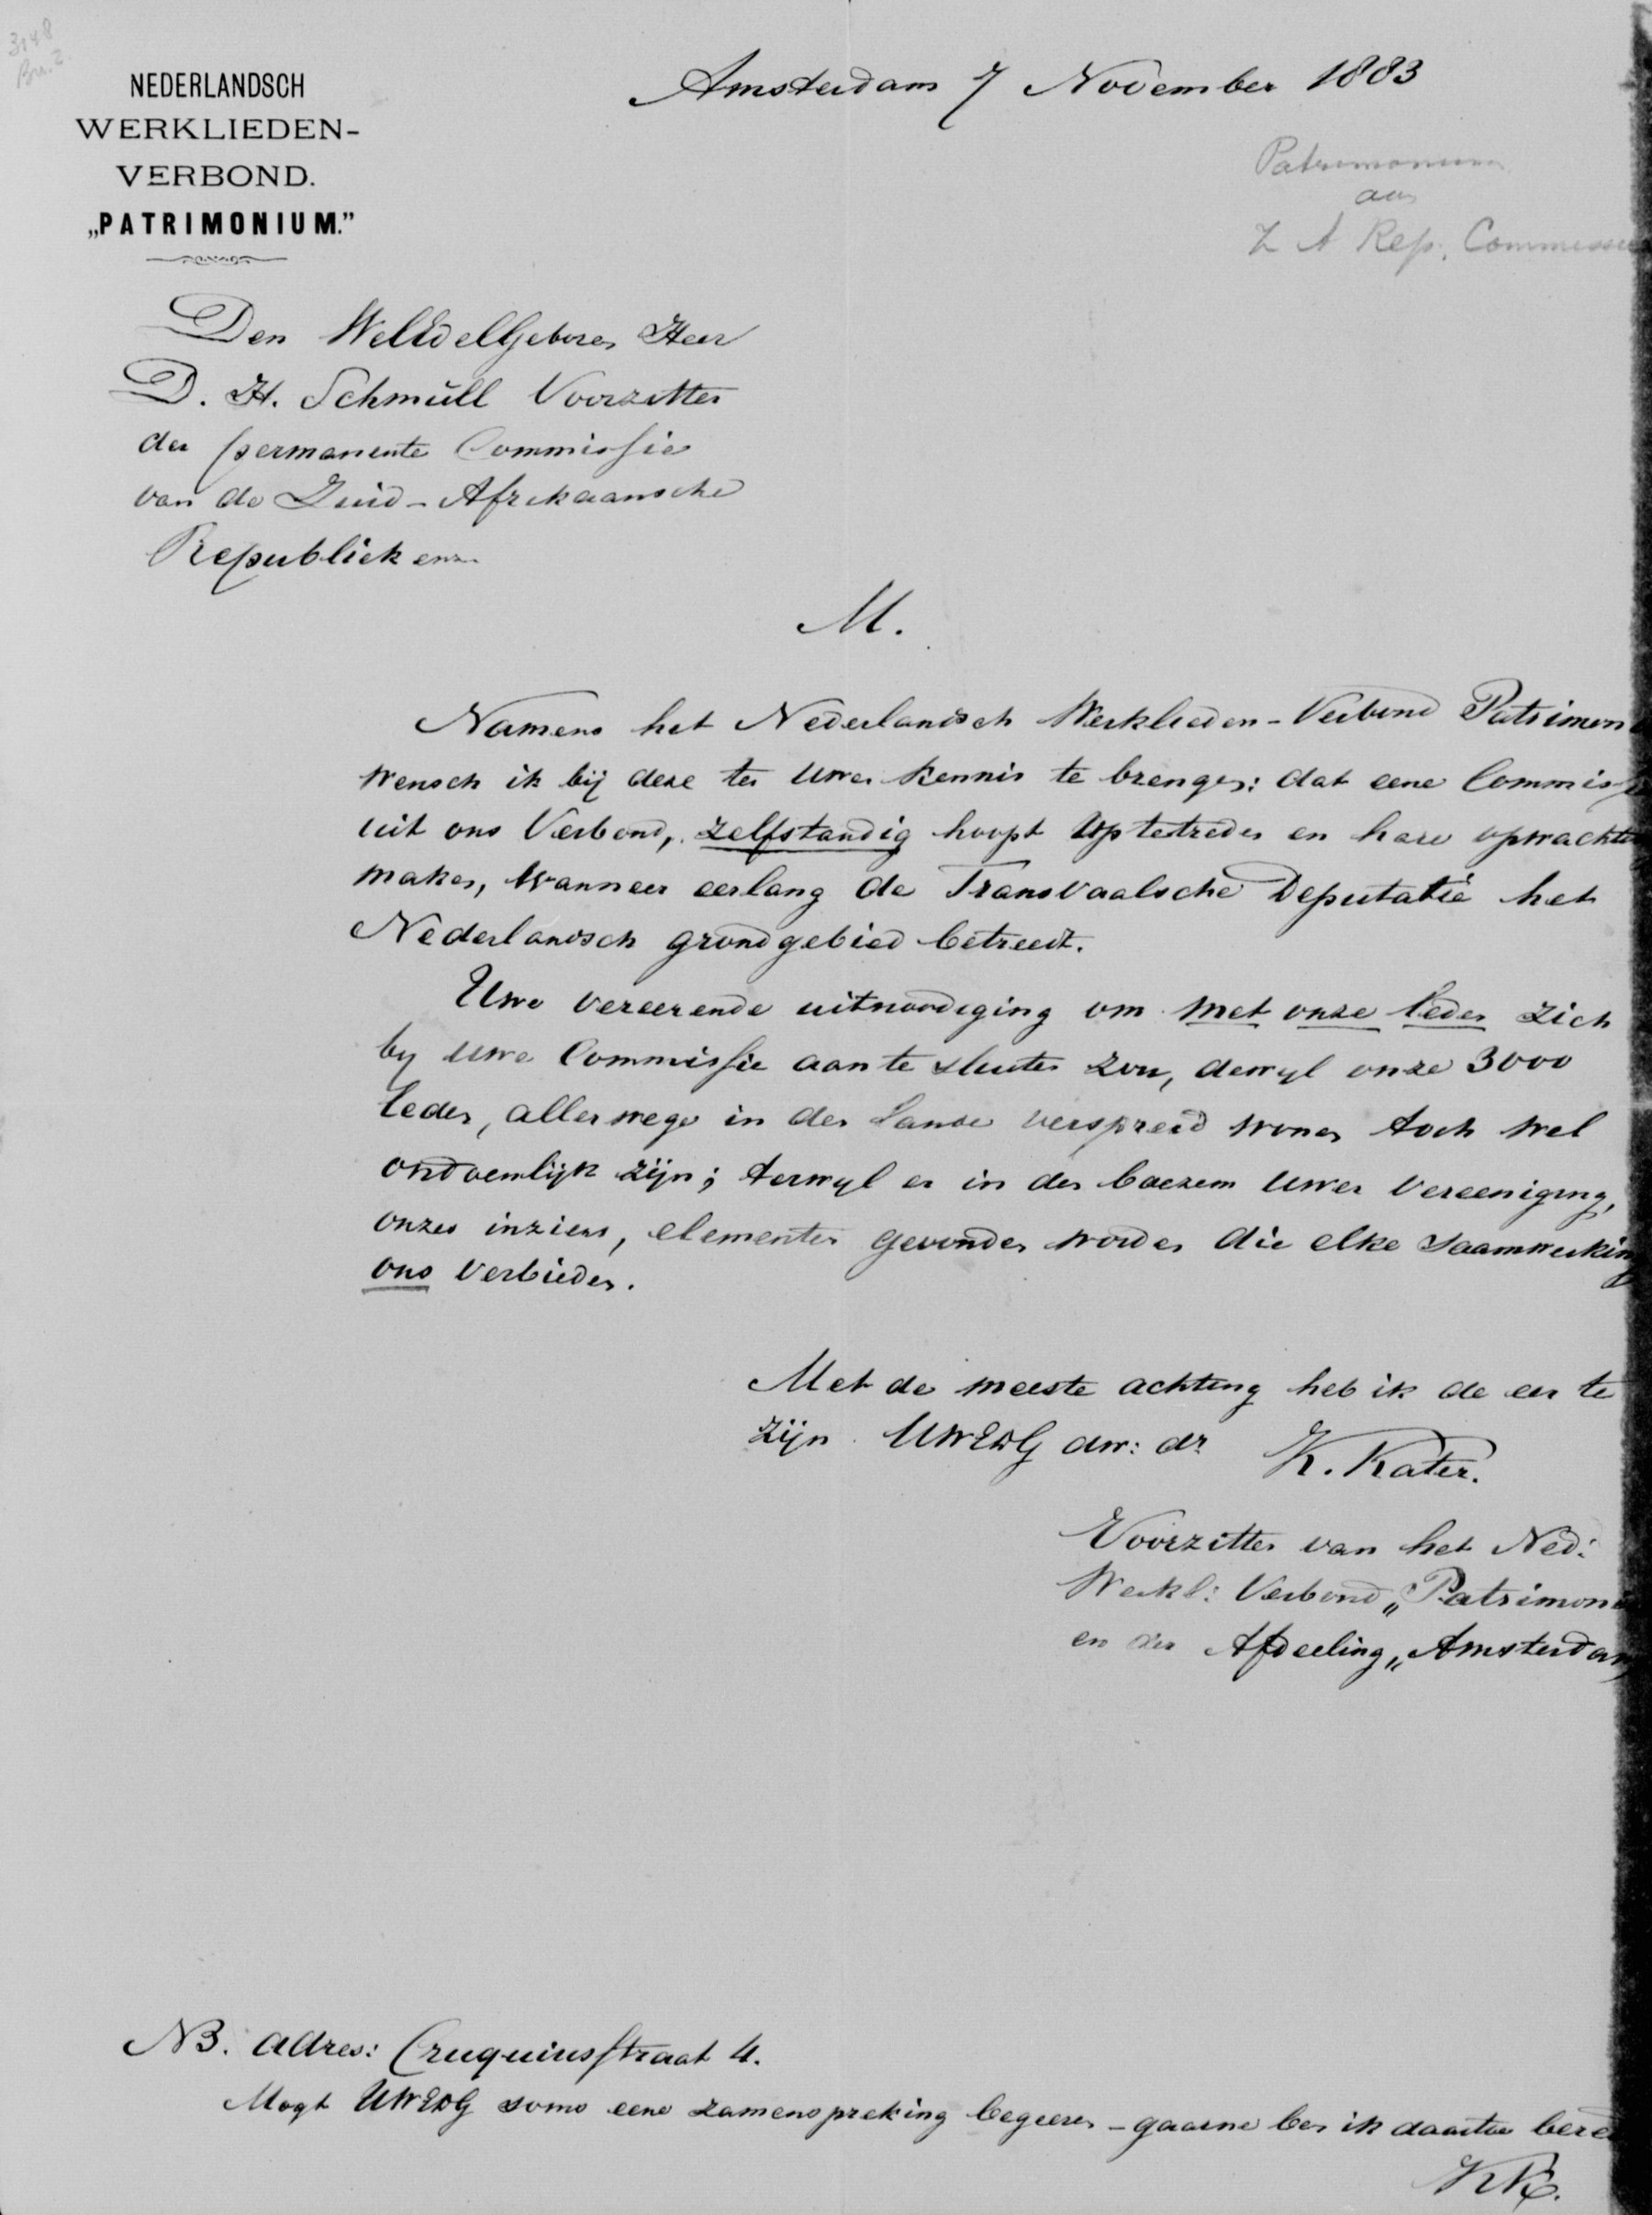 3148
Bu. 2.
NEDERLANDSCH
WERKLIEDEN-
VERBOND.
„PATRIMONIUM.”
Amsterdam 7 November 1883
Patrimonium
aan
Z A Rep. Commissie
Den WelEdelGeboren Heer
D. H. Schmüll Voorzitter
der permanente Commissie
van de Zuid-Afrikaansche
Republiek enz.
M.
Namens het Nederlandsch Werklieden-Verbond Patrimon
wensch ik bij deze ter Uwer kennis te brengen: dat eene Commissie
uit ons Verbond, zelfstandig hoopt optetreden en hare opwachting
maken, wanneer eerlang de Transvaalsche Deputatie het
Nederlandsch grondgebied betreedt.
Uwe vereerende uitnoodiging om met onze leden zich
by Uwe Commissie aan te sluiten zou, dewyl onze 3000
leden, allerwege in den Lande verspreid wonen toch wel
ondoenlijk zijn; terwyl er in den boezem Uwer Vereeniging,
onzes inziens, elementen gevonden worden die elke saamwerking
ons verbieden.
Met de meeste achting heb ik de eer te
zijn UWEDG dw: dr
K. Kater.
Voorzitter van het Ned:
Werkl: Verbond „Patrimoni
en der Afdeeling „Amsterdam
NB. Adres: Cruquiusstraat 4.
Mogt UWEDG soms eene zamenspreking begeeren - gaarne ben ik daartoe bere
KK.